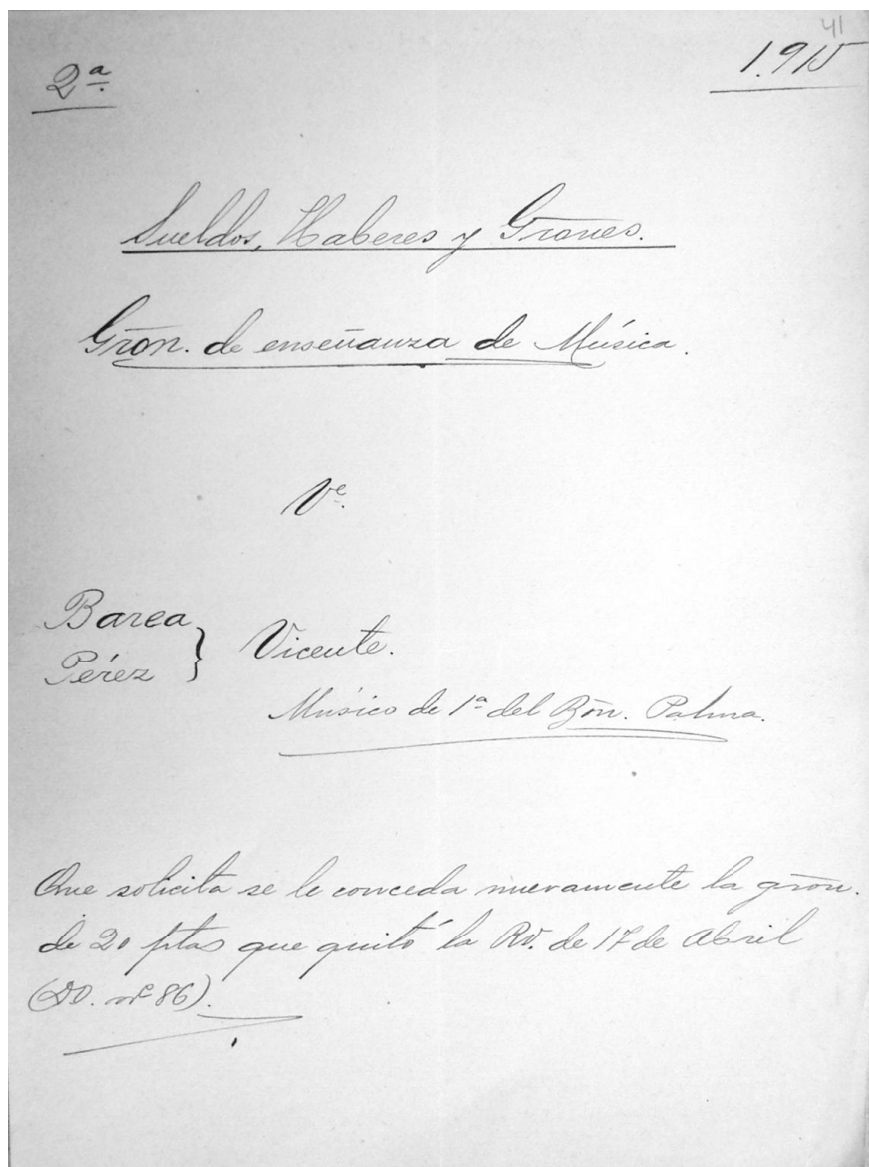 41
2ª
1.915
Sueldos, Haberes y Grones.
Grõn. de enseñanza de Música.
Ve.
Barea
Pérez } Vicente.
Músico de 1ª del Bõn. Palma.
Que solicita se le conceda nuevamente la grõn.
de 20 ptas que quitó la RO. de 17 de Abril
(DO. nº 86).